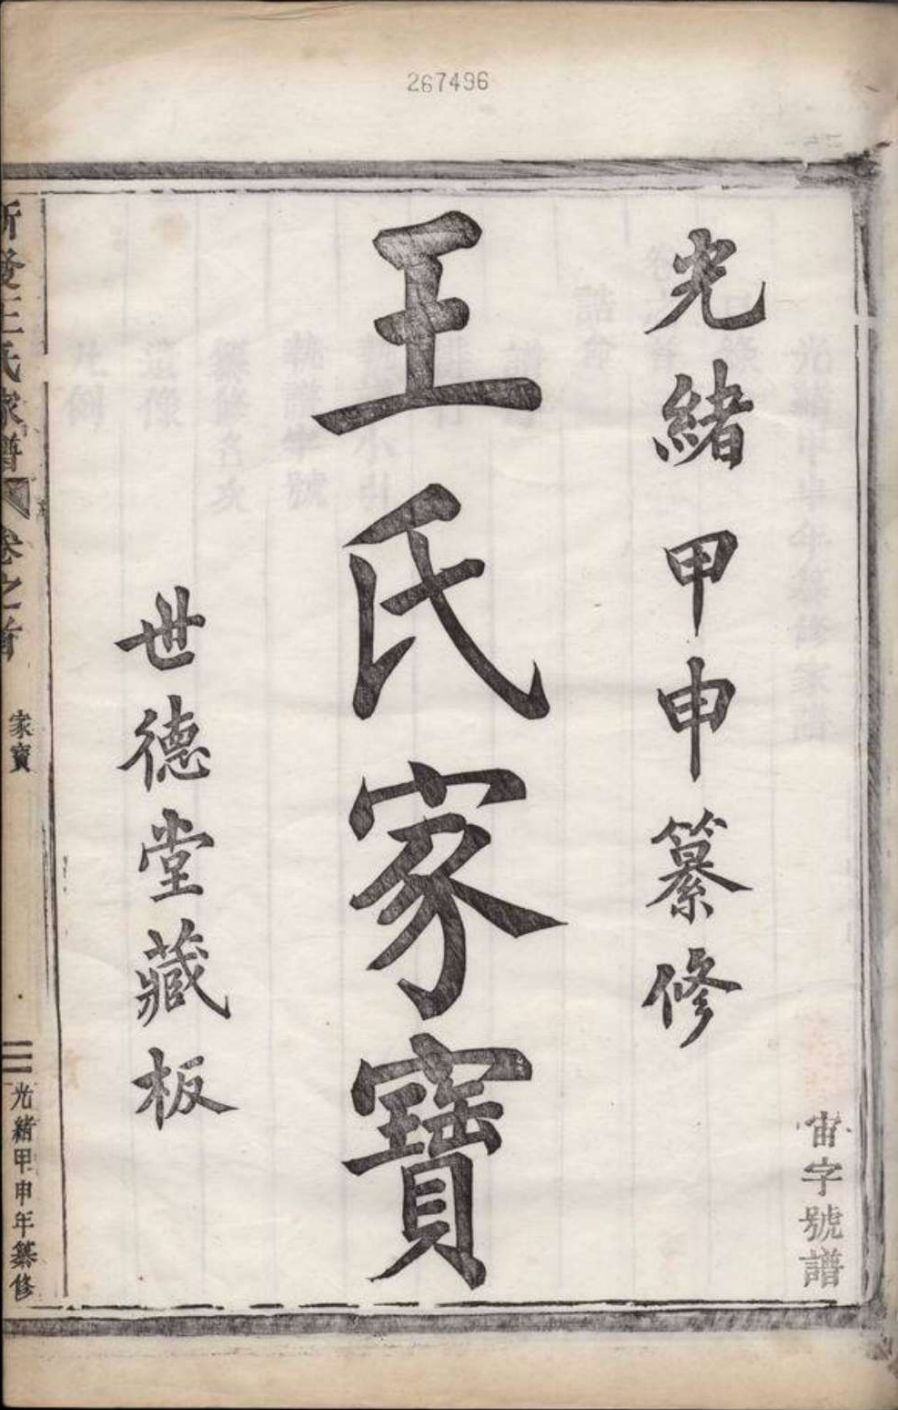 267496
光緒甲申纂修
宙字號譜
王氏家寶
世德堂藏板
王氏家譜 卷之首
家寶
二
光緒甲申年纂修